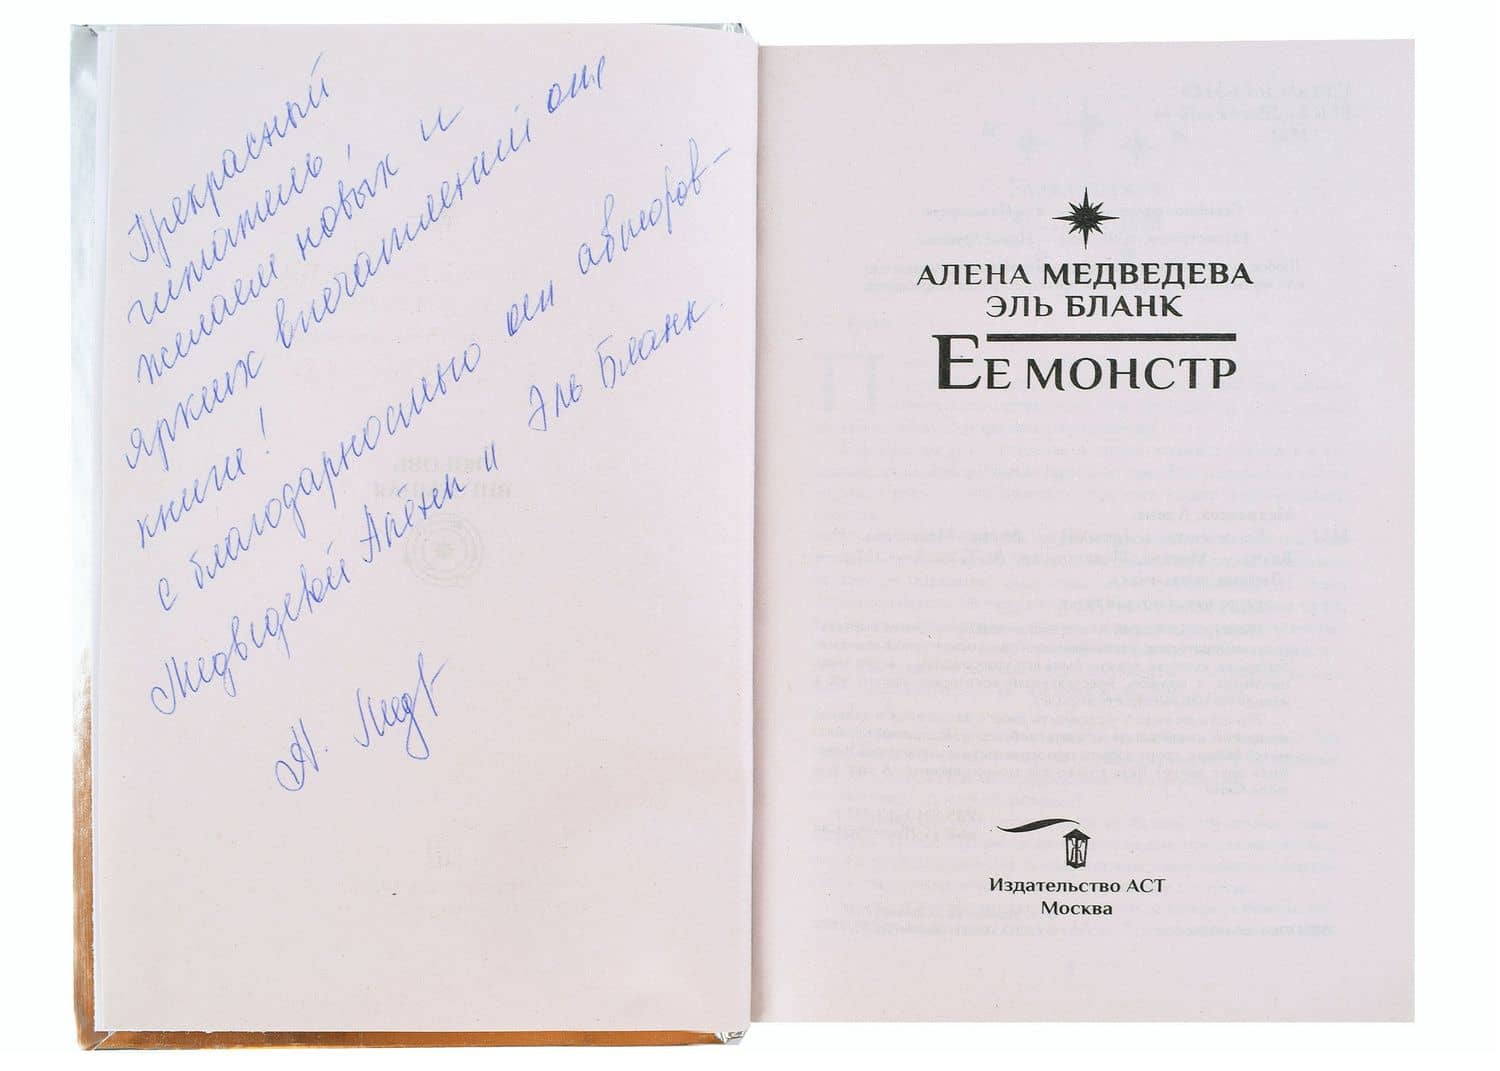 Прекрасный
читатель,
желаем новых и
ярких впечатлений от
книги!
С благодарностью от авторов -
Медведевой Алёны и Эль Бланк.
А. Медв
АЛЕНА МЕДВЕДЕВА
ЭЛЬ БЛАНК
ЕЕ МОНСТР
Ж
Издательство АСТ
Москва